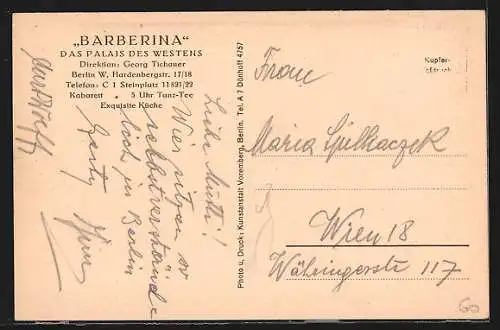 „BARBERINA“
DAS PALAIS DES WESTENS
Direktion: Georg Tichauer
Berlin W, Hardenbergstr. 17/18
Telefon: C 1 Steinplatz 11821/22
Kabarett • 5 Uhr Tanz-Tee
Exquisite Küche
Liebe Mutti!
Wir sitzen so
selbstverständ-
lich in Berlin
Photo u. Druck: Kunstanstalt Voremberg, Berlin. Tel. A 7 Dönhoff 4757
Kupfer-
Frau
Maria
Wien 18
Währingerstr 117
60